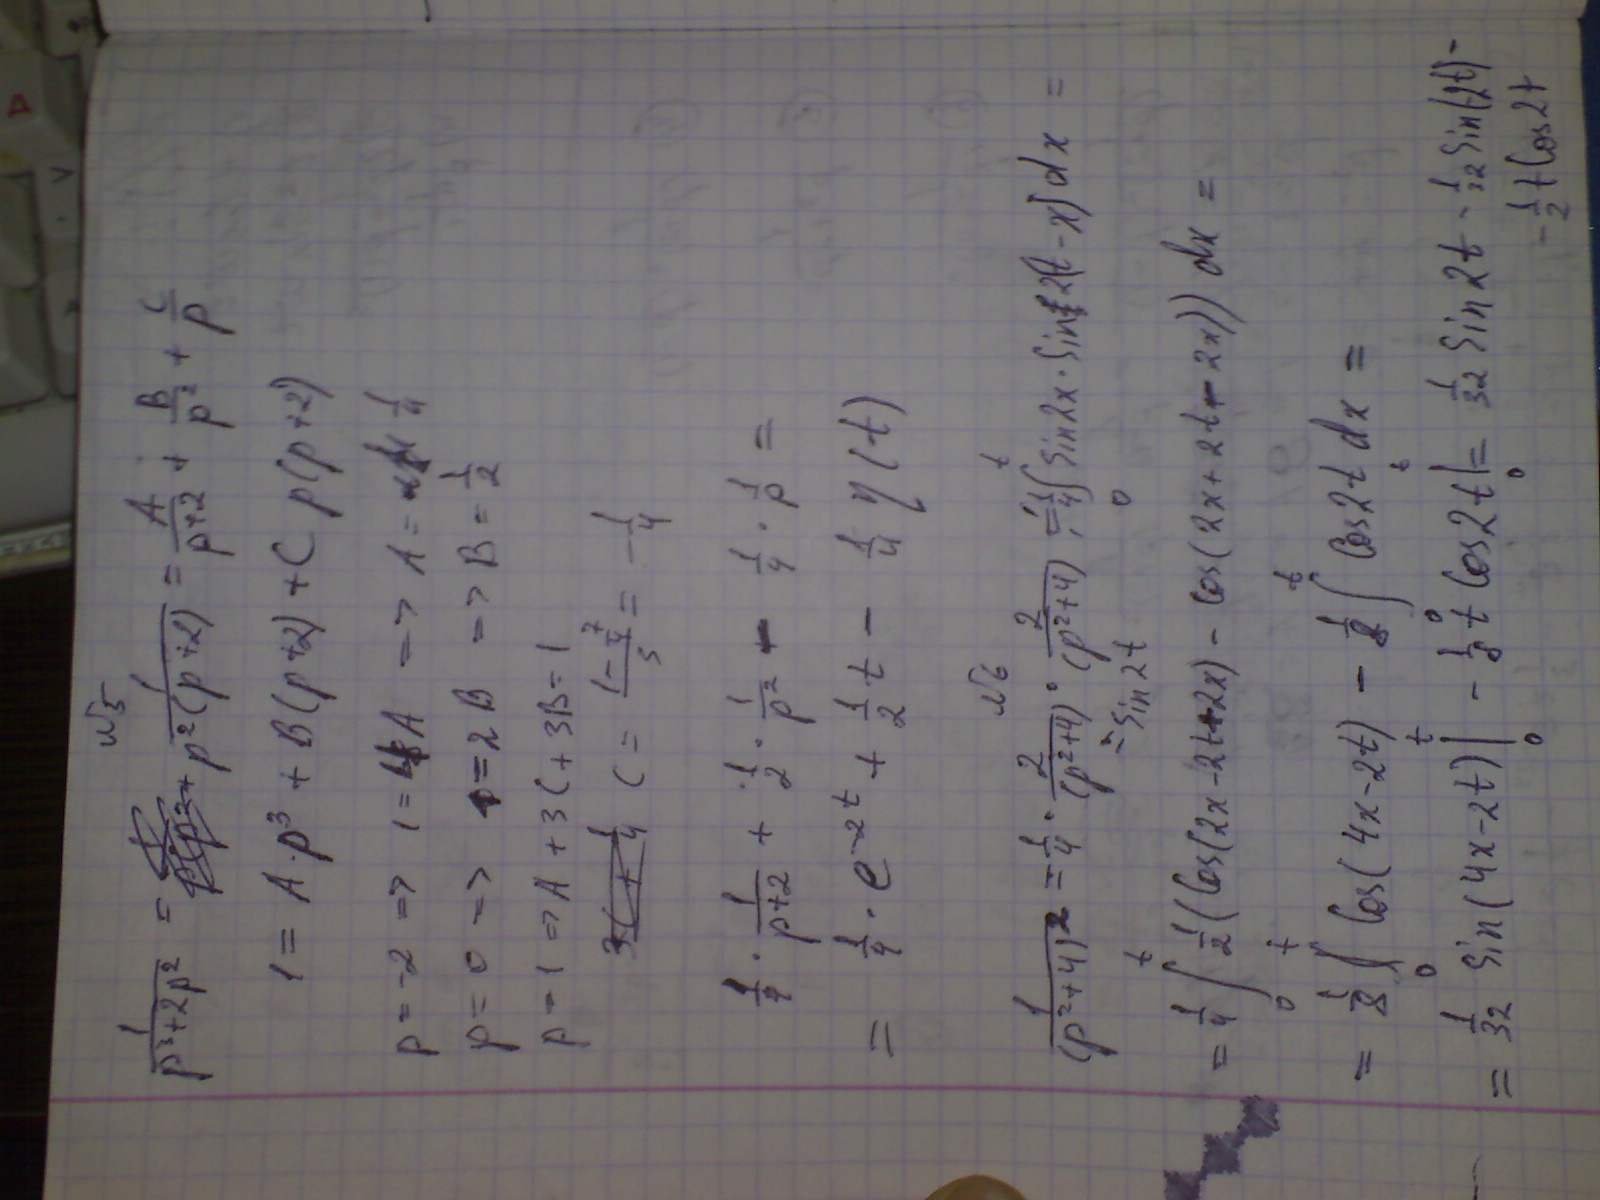 №5
1/(p³+2p²) = 1/(p²(p+2)) = A/(p+2) + B/p² + C/p
1 = A·p³ + B(p+2) + C p(p+2)
p=-2 => 1=4A => A = 1/4
p=0 => 1=2B => B=1/2
p=1 => A+3C+3B=1
C = = -1/4
1/4 · 1/(p+2) + 1/2 · 1/p² - 1/4 · 1/p =
= 1/4 · e^(-2t) + 1/2 t - 1/4 η(t)
№6
1/(p²+4)² = 1/4 · 2/(p²+4) · 2/(p²+4) = 1/4 ∫₀ᵗ sin2x · sin2(t-x) dx =
= sin 2t
= 1/4 ∫₀ᵗ 1/2 (cos(2x-2t+2x) - cos(2x+2t-2x)) dx =
= 1/8 ∫₀ᵗ cos(4x-2t) - 1/8 ∫₀ᵗ cos2t dx =
= 1/32 sin(4x-2t)|₀ᵗ - 1/8 t cos2t|₀ᵗ = 1/32 sin2t - 1/32 sin(-2t) -
- 1/2 t cos2t